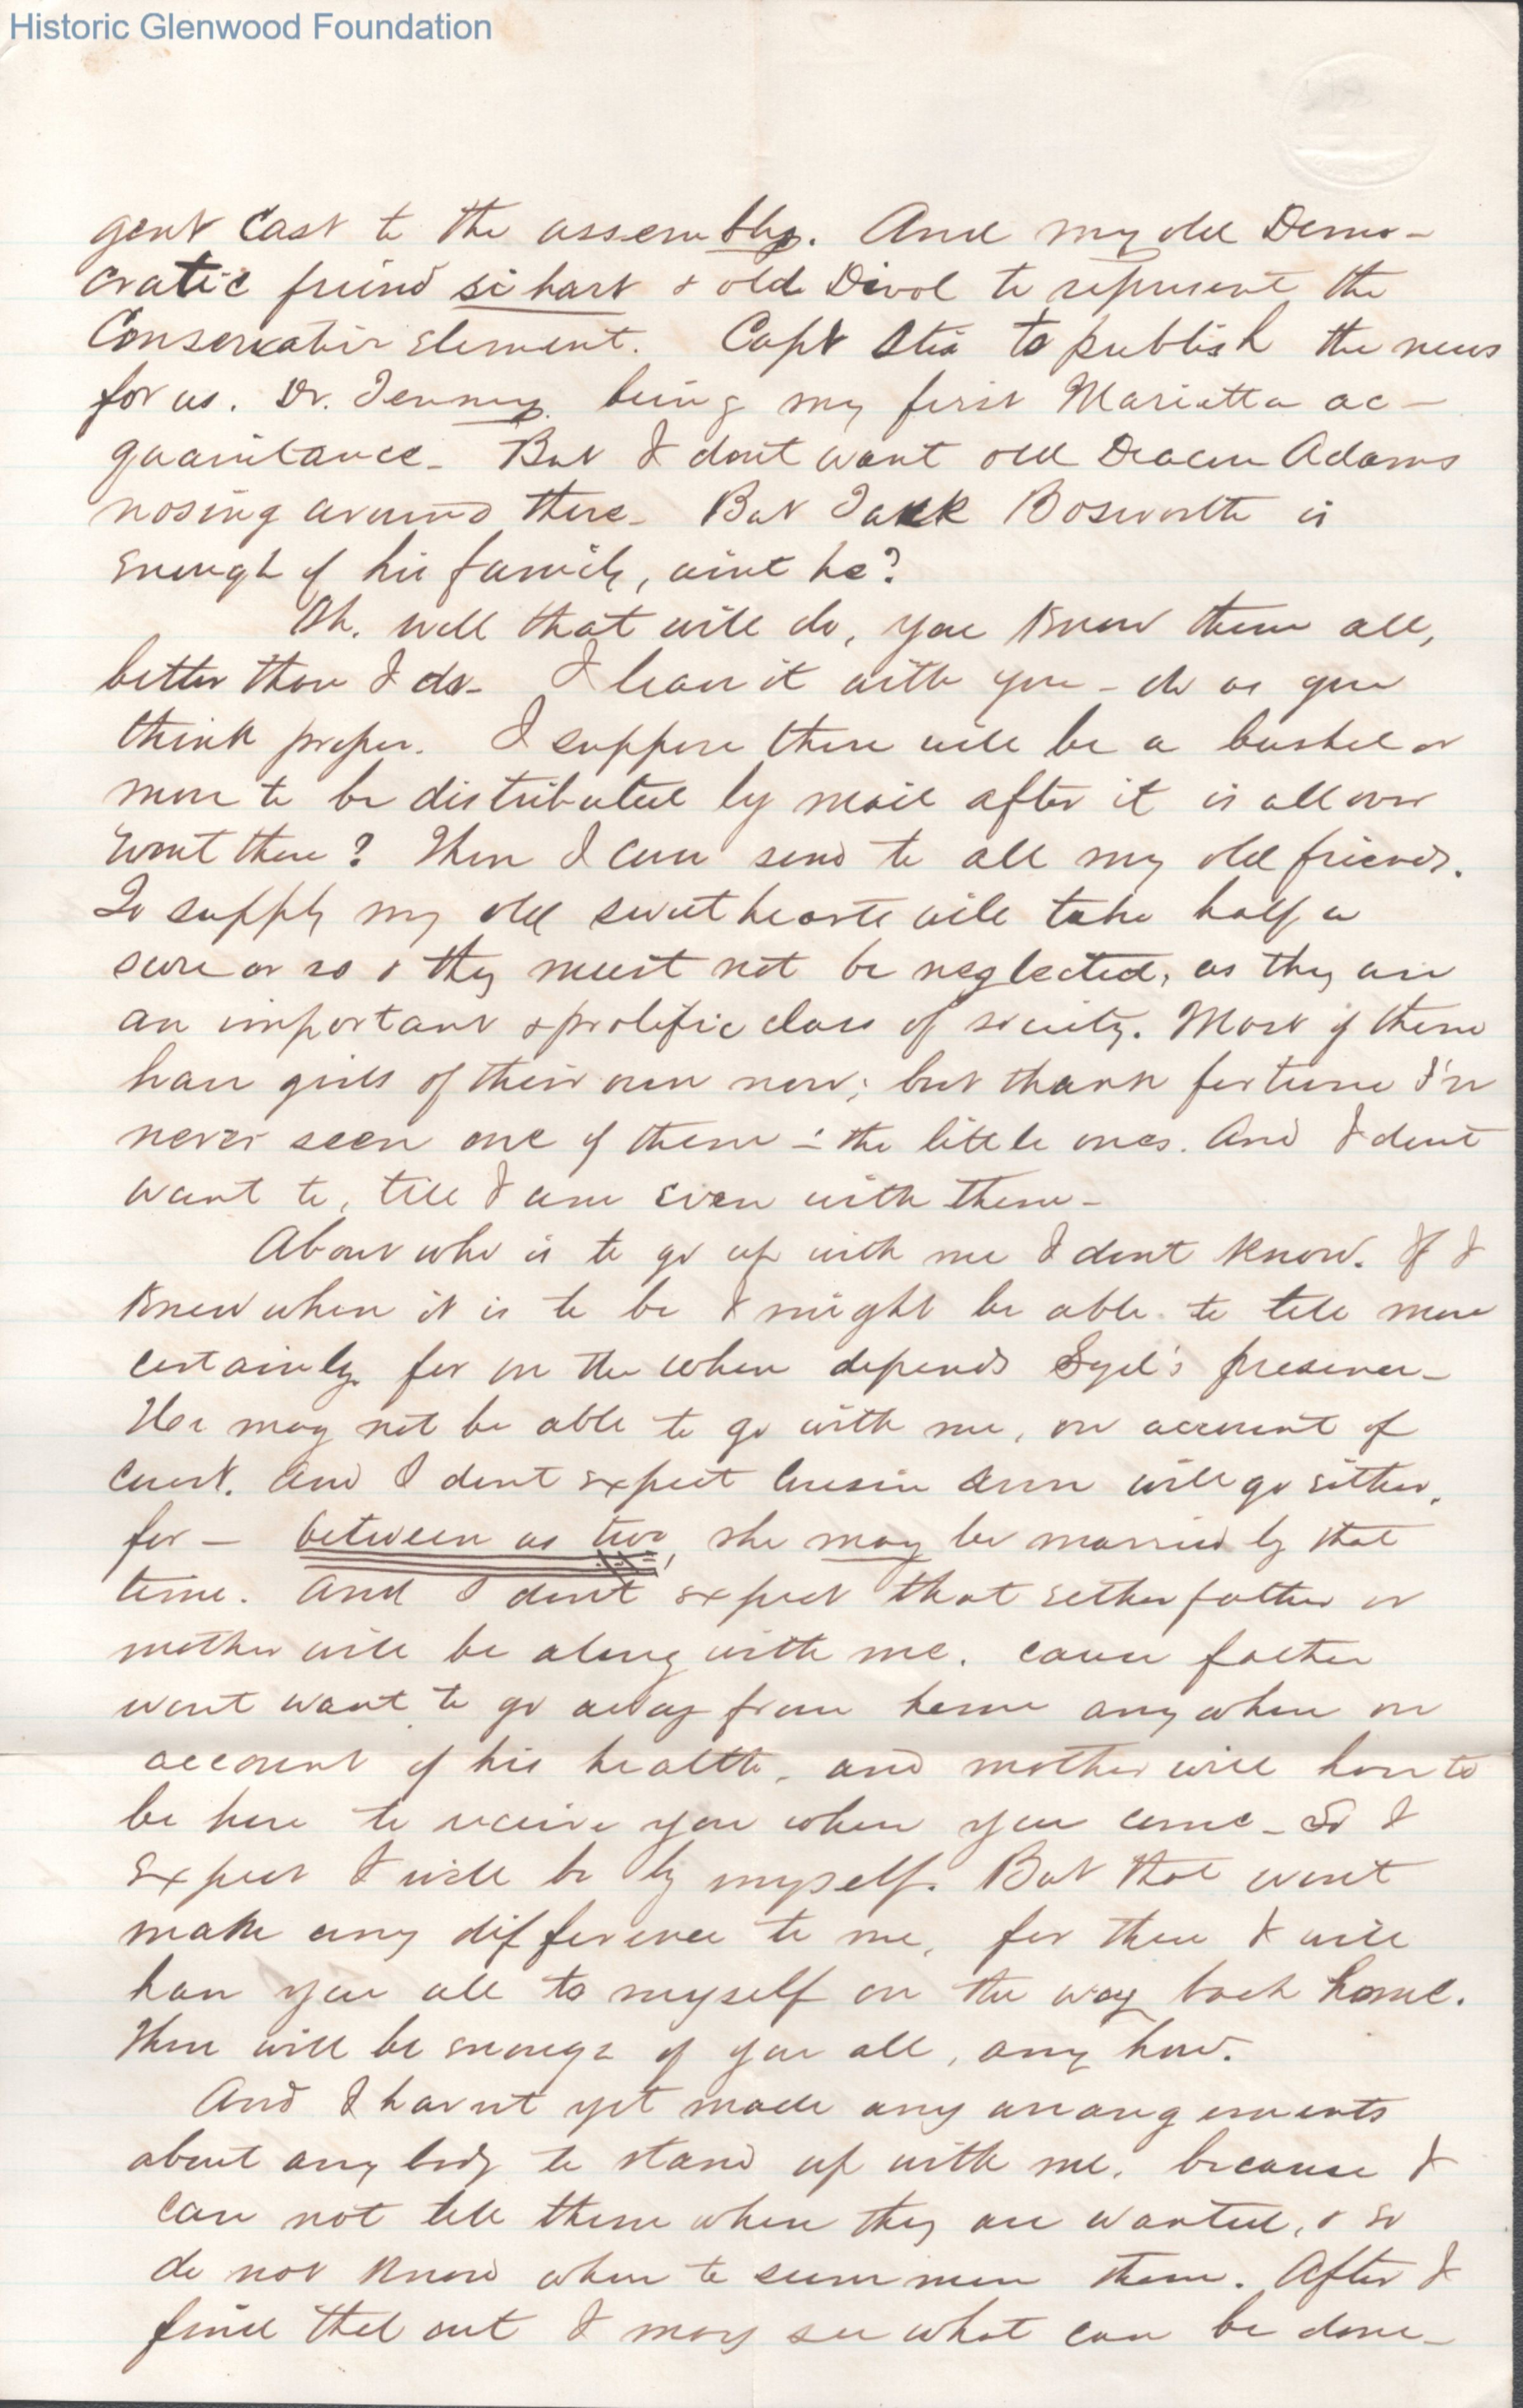 Historic Glenwood Foundation
gent cast to the assembly. And my old Demo-
cratic friend si hart & old Devol to represent the
Conservative element. Capt Stia to publish the news
for us. Dr. Jenny being my first Marietta ac-
quaintance - But I dont want old Deacon Adams
nosing around there - But Jack Bosworth is
enough of his family, aint he?
Oh. well that will do, you know them all,
better than I do - I leave it with you - do as you
think proper. I suppose there will be a bushel or
more to be distributed by mail after it is all over
wont there? Then I can send to all my old friends.
To supply my old sweethearts will take half a
score or so & they must not be neglected, as they are
an important & prolific class of society. Most of them
have girls of their own now; but thank fortune I've
never seen one of them - : the little ones. And I dont
want to, till I am even with them -
About who is to go up with me I dont know. If I
knew when it is to be I might be able to tell more
certainly for on the when depends Syd's presence -
He may not be able to go with me, on account of
court. And I dont expect cousin Ann will go either,
for - between us two, she may be married by that
time. And I dont expect that either father or
mother will be along with me. cause father
wont want to go away from home anywhere on
account of his health, and mother will have to
be here to receive you when you come - So I
expect I will be by myself. But that wont
make any difference to me, for then I will
have you all to myself on the way back home.
There will be enough of you all, any how.
And I havnt yet made any arrangements
about any body to stand up with me, because I
can not tell them when they are wanted, & so
do not know when to summon them. After I
find that out I may see what can be done -